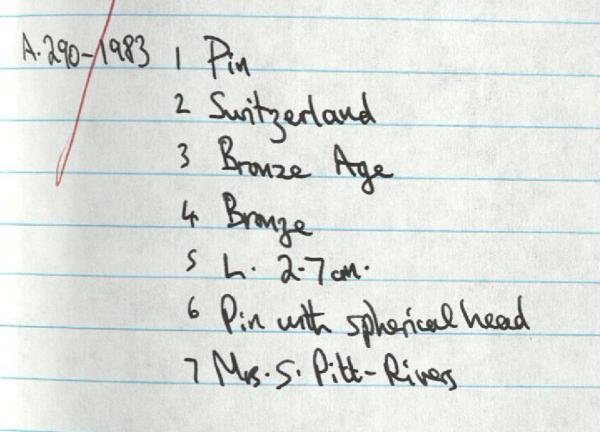 A.290-1983 1 Pin
2 Switzerland
3 Bronze Age
4 Bronze
5 L. 2.7cm.
6 Pin with spherical head
7 Mrs. S. Pitt-Rivers